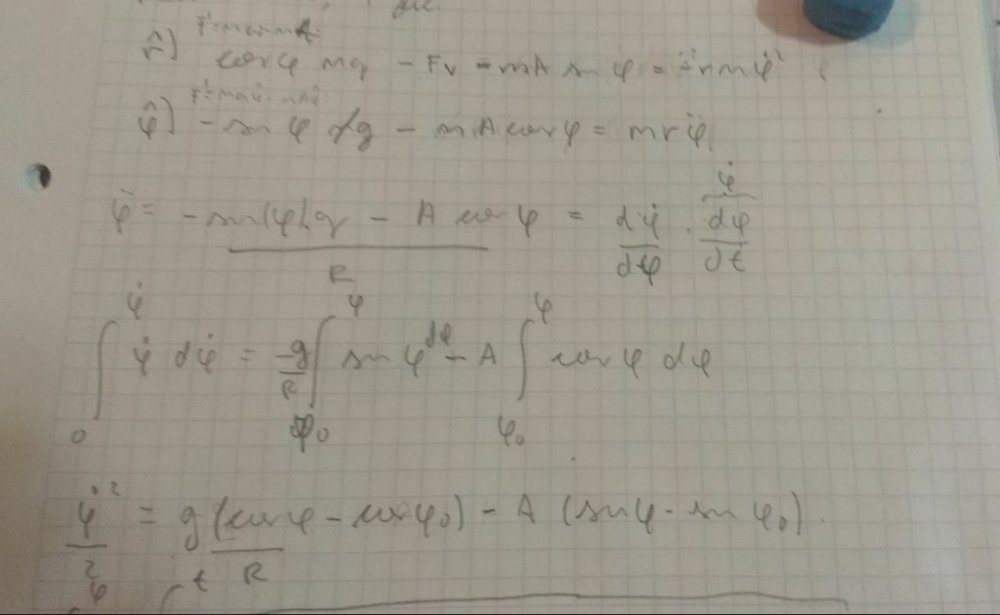 r̂) cos φ mg - Fv - mA sin φ = - r m φ̇²
φ̂) - sin φ mg - m A cos φ = m r φ̈
φ̈ = (- sin(φ) g - A cos φ) / R = dφ̇/dφ · dφ/dt φ̇
∫₀^φ̇ φ̇ dφ̇ = -g/R ∫_φ₀^φ sin φ dφ - A ∫_φ₀^φ cos φ dφ
φ̇²/2 = g (cos φ - cos φ₀)/R - A (sin φ - sin φ₀)
φ t